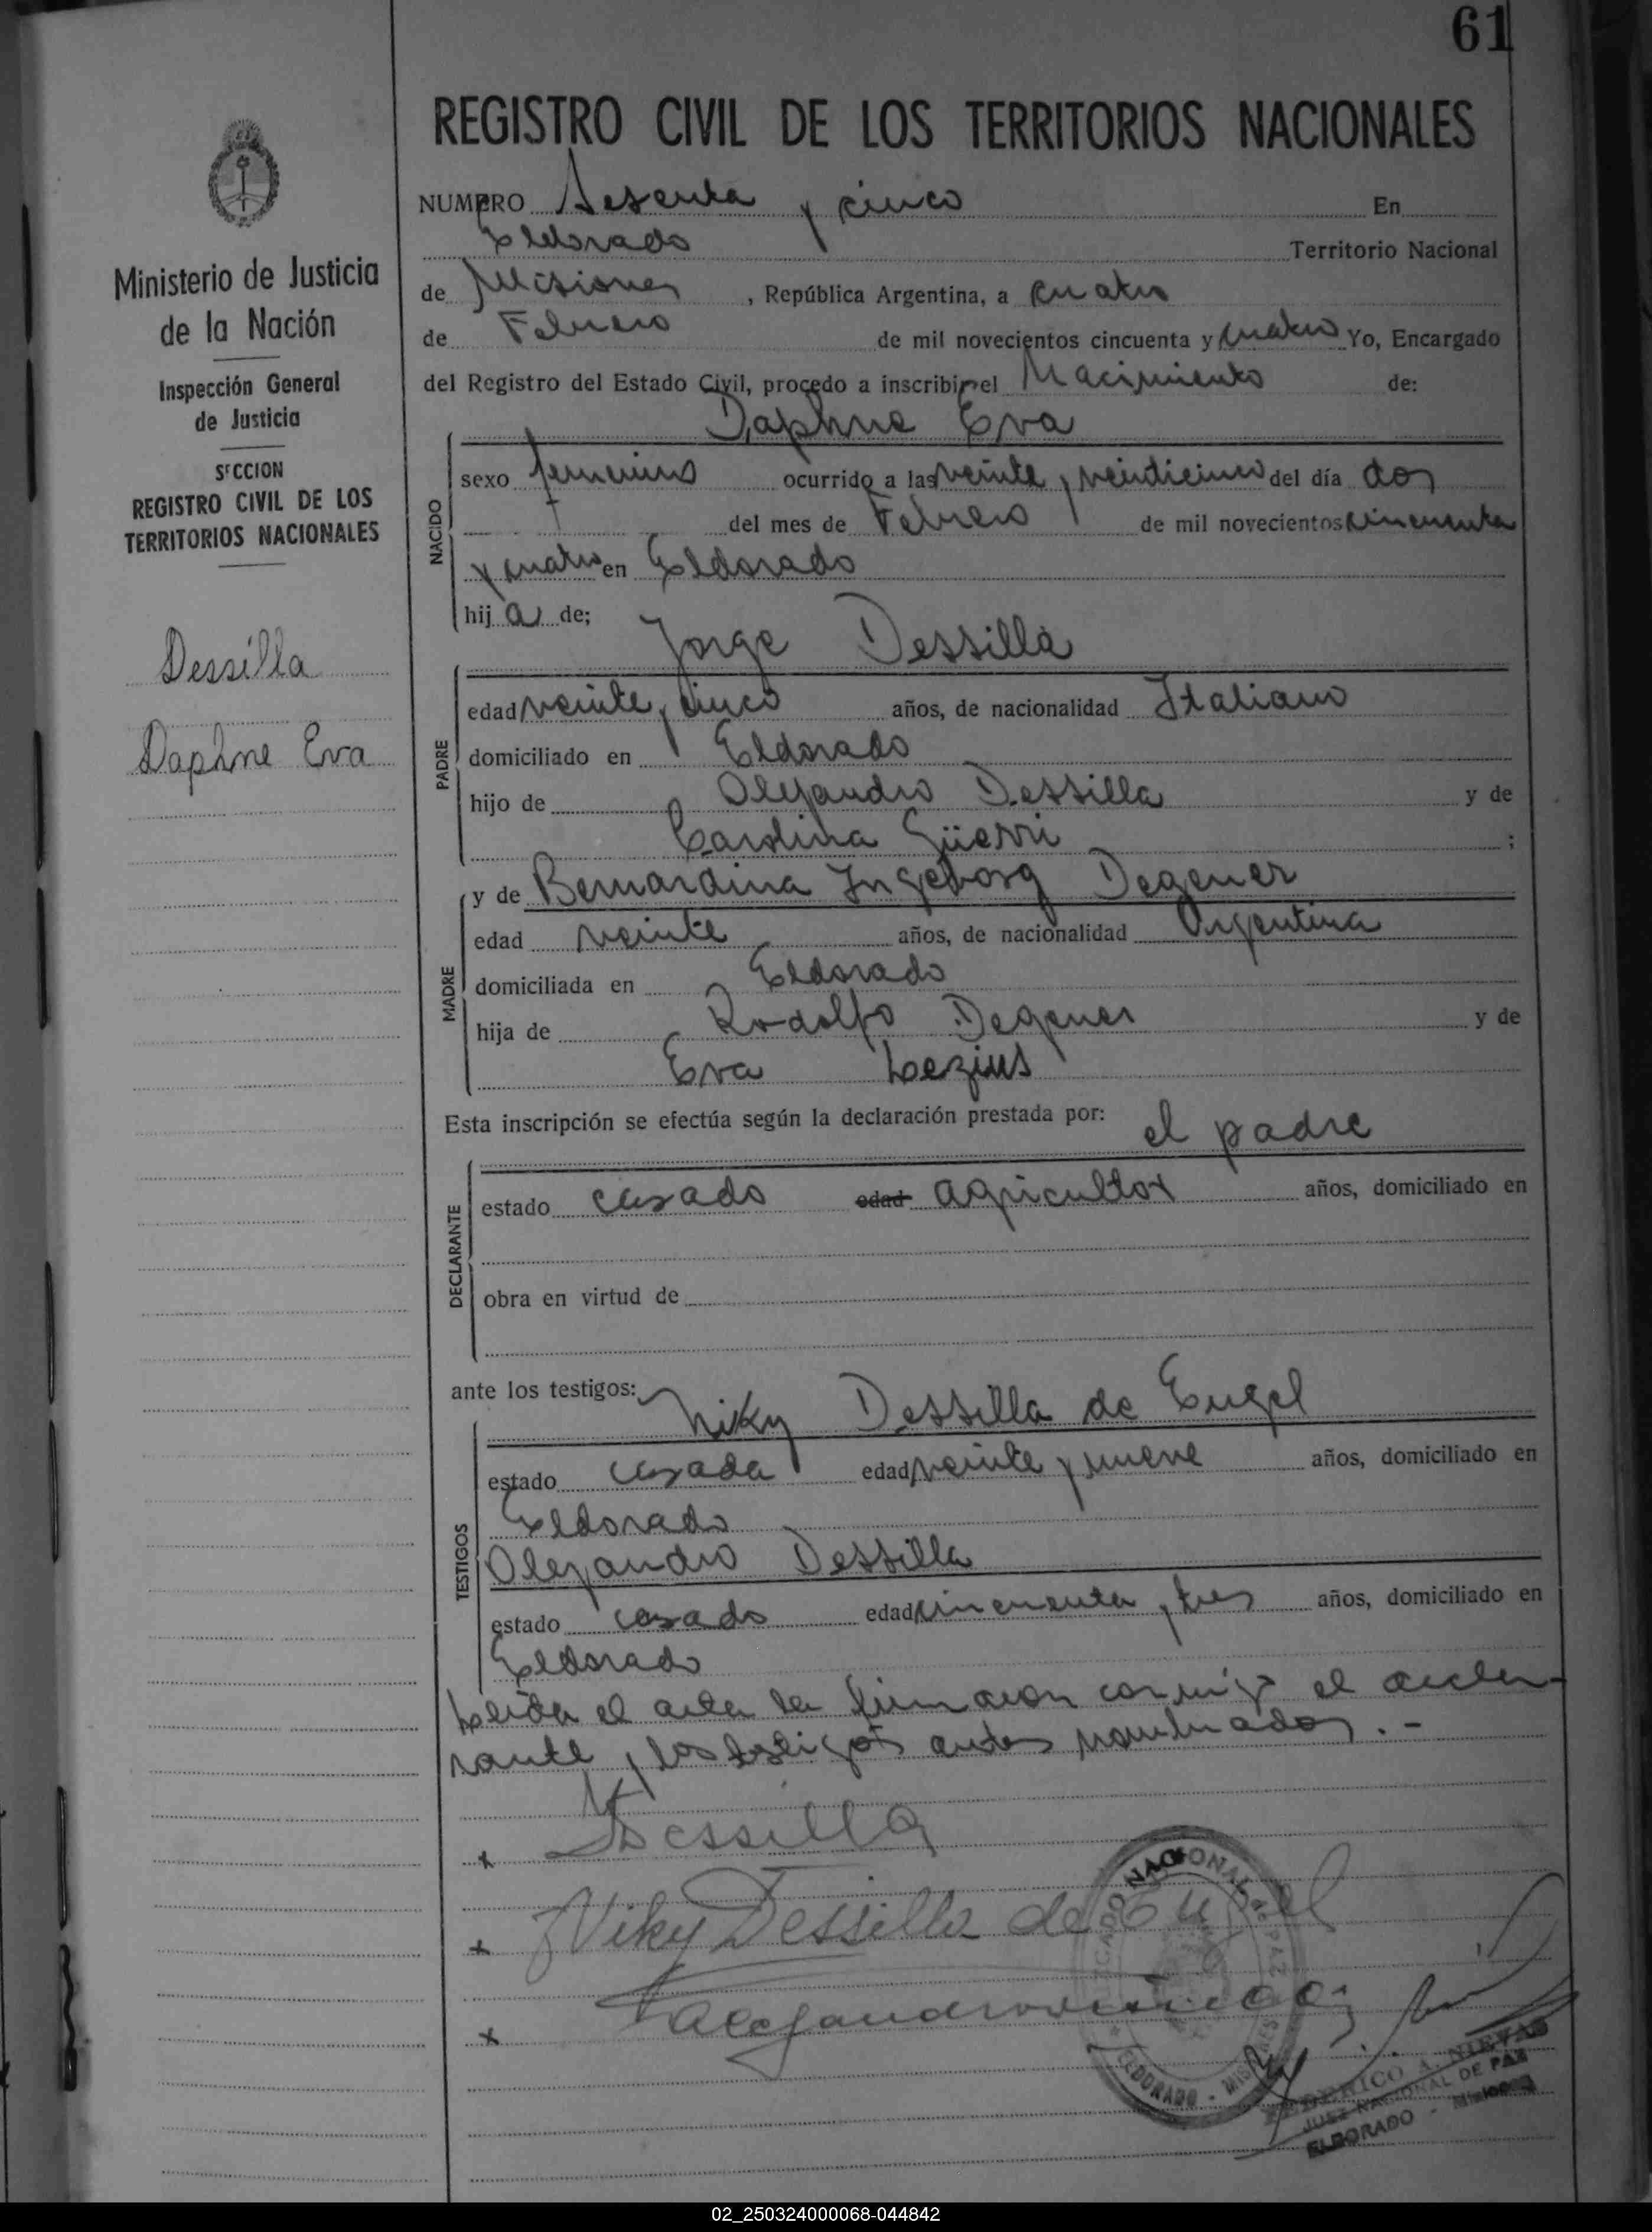 61
REGISTRO CIVIL DE LOS TERRITORIOS NACIONALES
Ministerio de Justicia
de la Nación
Inspección General
de Justicia
SECCION
REGISTRO CIVIL DE LOS
TERRITORIOS NACIONALES
Dessilla
Daphne Eva
NUMERO Sesenta y cinco En
Eldorado Territorio Nacional
de Misiones, República Argentina, a cuatro
de Febrero de mil novecientos cincuenta y cuatro Yo, Encargado
del Registro del Estado Civil, procedo a inscribir el Nacimiento de:
Daphne Eva
NACIDO
sexo femenino ocurrido a las veinte y veinticinco del día dos
del mes de Febrero de mil novecientos cincuenta
y cuatro en Eldorado
hij a de;
Jorge Dessilla
PADRE
edad veinte y cinco años, de nacionalidad Italiano
domiciliado en Eldorado
hijo de Alejandro Dessilla y de
Carolina Güerri ;
MADRE
y de Bernardina Ingeborg Degener
edad veinte años, de nacionalidad Argentina
domiciliada en Eldorado
hija de Rodolfo Degener y de
Eva Lezius
Esta inscripción se efectúa según la declaración prestada por: el padre
DECLARANTE
estado casado edad agricultor años, domiciliado en
obra en virtud de
ante los testigos: Niky Dessilla de Engel
TESTIGOS
estado casada edad veinte y nueve años, domiciliado en
Eldorado
Alejandro Dessilla
estado casado edad cincuenta y tres años, domiciliado en
Eldorado
Leida el acta la firmaron conmigo el decla-
rante y los testigos antes nombrados.-
x Dessilla
x Niky Dessilla de Engel
x Alejandro
JUZGADO NACIONAL DE PAZ
ELDORADO - MISIONES
FEDERICO A. NIEVAS
JUEZ NACIONAL DE PAZ
ELDORADO - Misiones
02_250324000068-044842